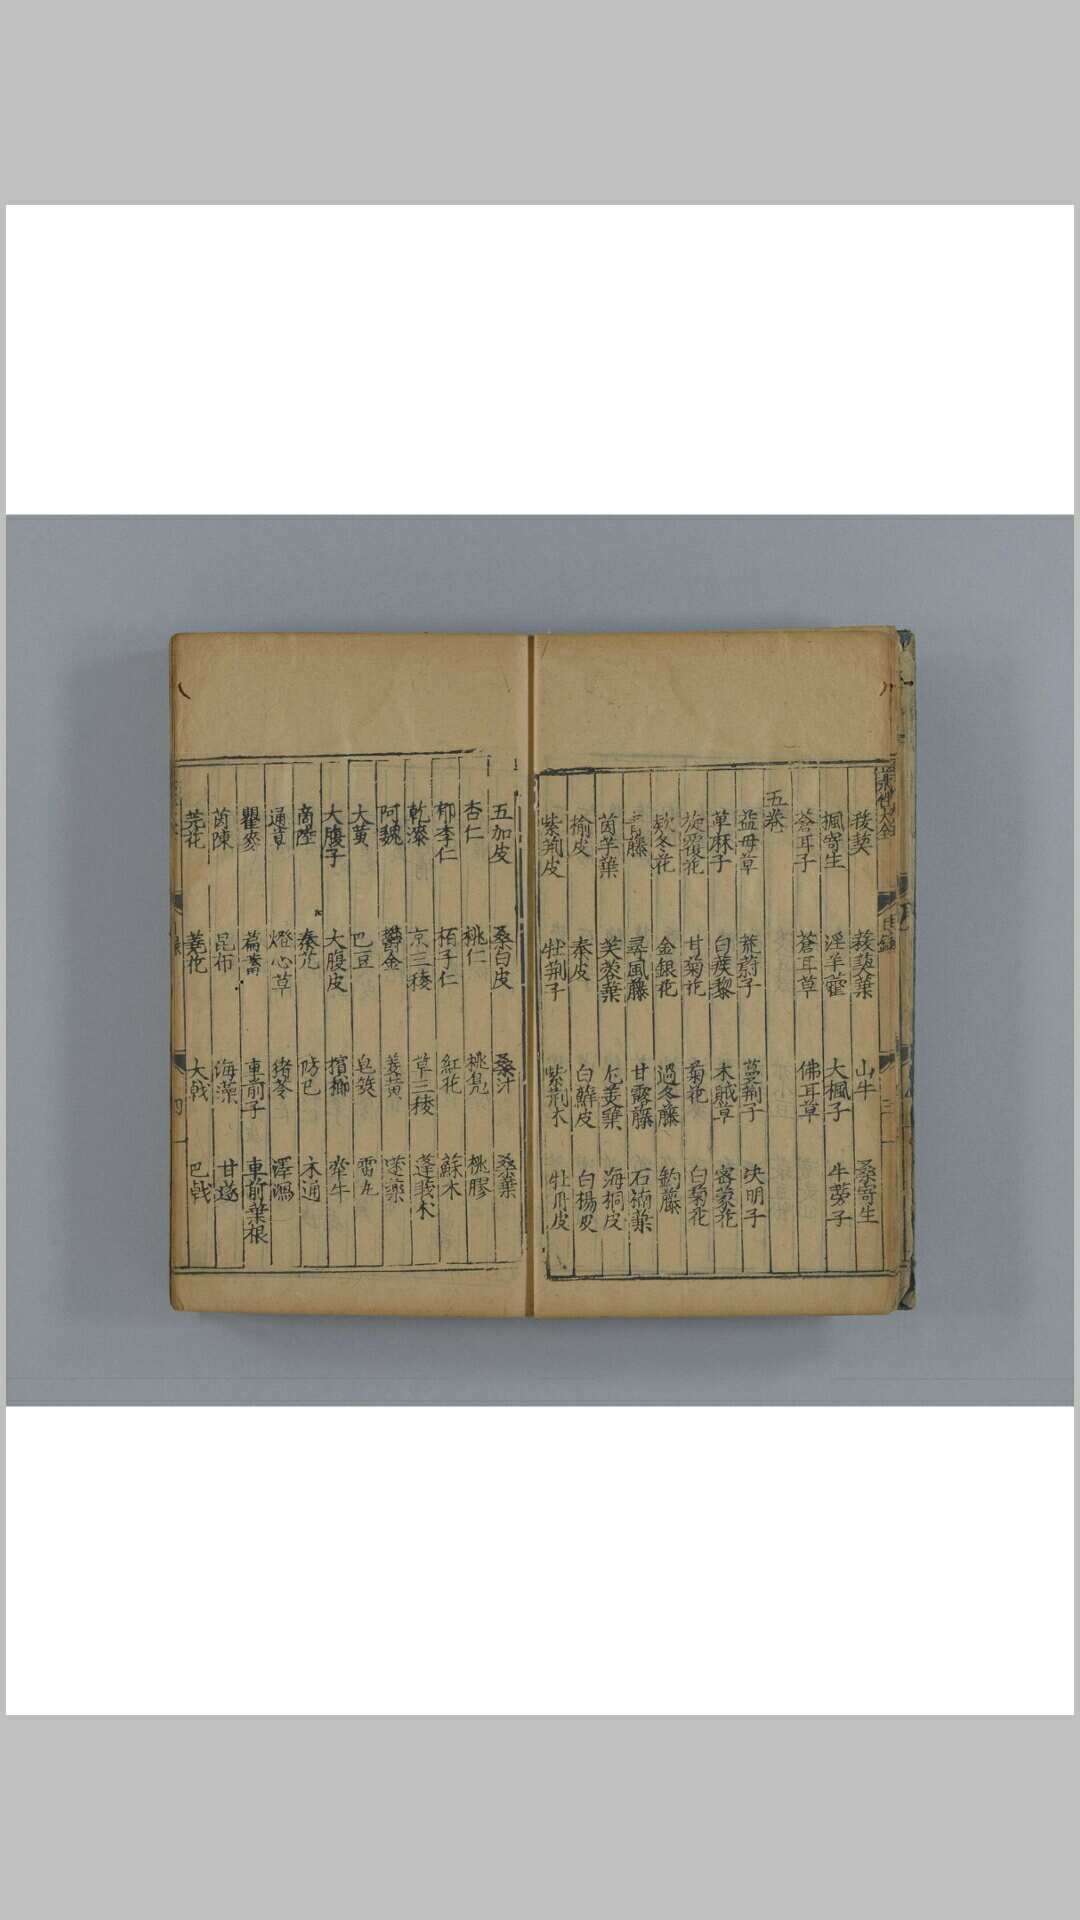 菝葜 菝葜葉 山牛 桑寄生
楓寄生 淫羊藿 大楓子 牛蒡子
蒼耳子 蒼耳草 佛耳草
五卷
益母草 茺蔚子 蔓荆子 决明子
草麻子 白蒺藜 木賊草 密蒙花
旋覆花 甘菊花 菊花 白菊花
欵冬花 金銀花 過冬藤 釣藤
青藤 尋風藤 甘露藤 石楠葉
茵芋葉 芙蓉葉 海桐皮
榆皮 秦皮 白鮮皮 白楊皮
紫荆皮 牡荆子 紫荆木 牡丹皮
五加皮 桑白皮 桑汁 桑葉
杏仁 桃仁 桃梟 桃膠
郁李仁 栢子仁 紅花 蘇木
乾漆 京三稜 草三稜 蓬莪木
阿魏 鬱金 姜黄 没藥
大黄 巴豆 皂筴 雷丸
大腹子 大腹皮 檳榔 牽牛
商陸 秦艽 防已 木通
通草 燈心草 猪苓 澤瀉
瞿麥 萹蓄 車前子 車前葉根
茵陳 昆布 海藻 甘遂
芫花 蕘花 大戟 巴戟
目錄
三
四